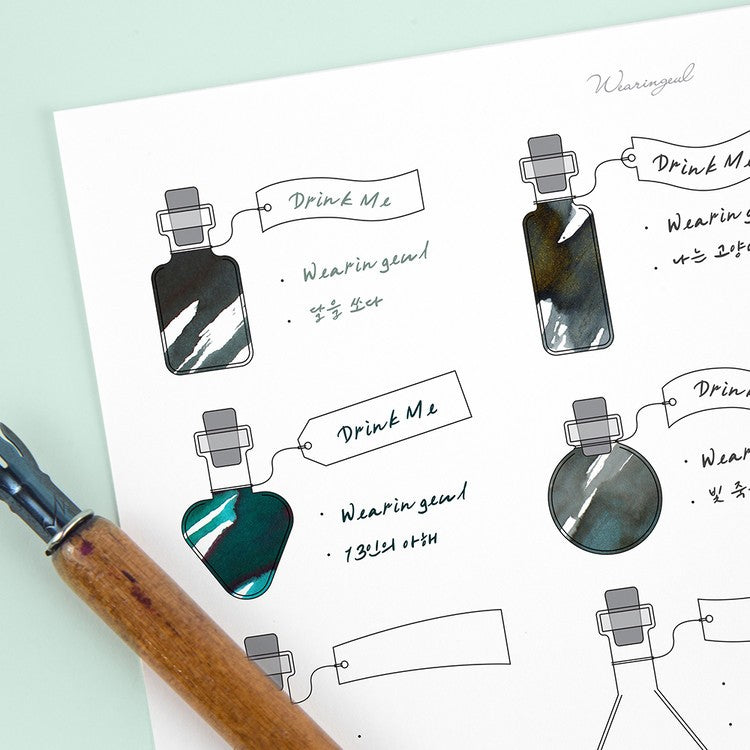 Wearingeul
Drink Me
Wearingeul
달을 쏘다
Drink Me
Wearing
나는 고양
Drink Me
Wearingeul
13인의 아해
Drin
Wear
빛